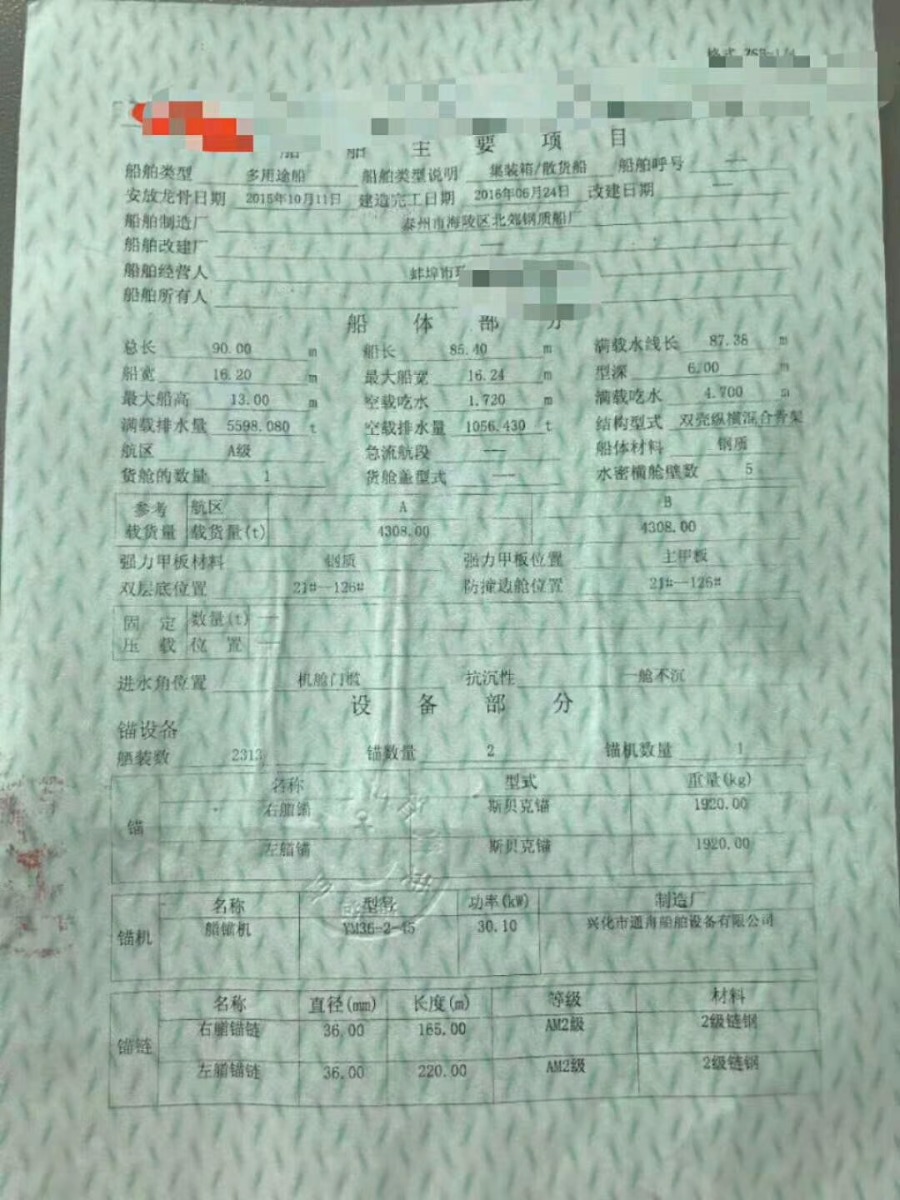 船舶主要项目
船舶类型 多用途船 船舶类型说明 集装箱/散货船 船舶呼号 —
安放龙骨日期 2015年10月11日 建造完工日期 2016年06月24日 改建日期 —
船舶制造厂 泰州市海陵区北郊钢质船厂
船舶改建厂 —
船舶经营人 蚌埠市
船舶所有人
船体部分
总长 90.00 m 船长 85.40 m 满载水线长 87.38 m
船宽 16.20 m 最大船宽 16.24 m 型深 6.00 m
最大船高 13.00 m 空载吃水 1.720 m 满载吃水 4.700 m
满载排水量 5598.080 t 空载排水量 1056.430 t 结构型式 双壳纵横混合骨架
航区 A级 急流航段 — 船体材料 钢质
货舱的数量 1 货舱盖型式 — 水密横舱壁数 5
参考 航区 A B
载货量 载货量(t) 4308.00 4308.00
强力甲板材料 钢质 强力甲板位置 主甲板
双层底位置 21#--126# 防撞边舱位置 21#--126#
固定 数量(t) —
压载 位置 —
进水角位置 机舱门槛 抗沉性 一舱不沉
设备部分
锚设备
舾装数 2313 锚数量 2 锚机数量 1
名称 型式 重量(kg)
锚 右艏锚 斯贝克锚 1920.00
左艏锚 斯贝克锚 1920.00
名称 型号 功率(kW) 制造厂
锚机 艏锚机 YM36-2-45 30.10 兴化市通舟船舶设备有限公司
名称 直径(mm) 长度(m) 等级 材料
锚链 右艏锚链 36.00 165.00 AM2级 2级链钢
左艏锚链 36.00 220.00 AM2级 2级链钢